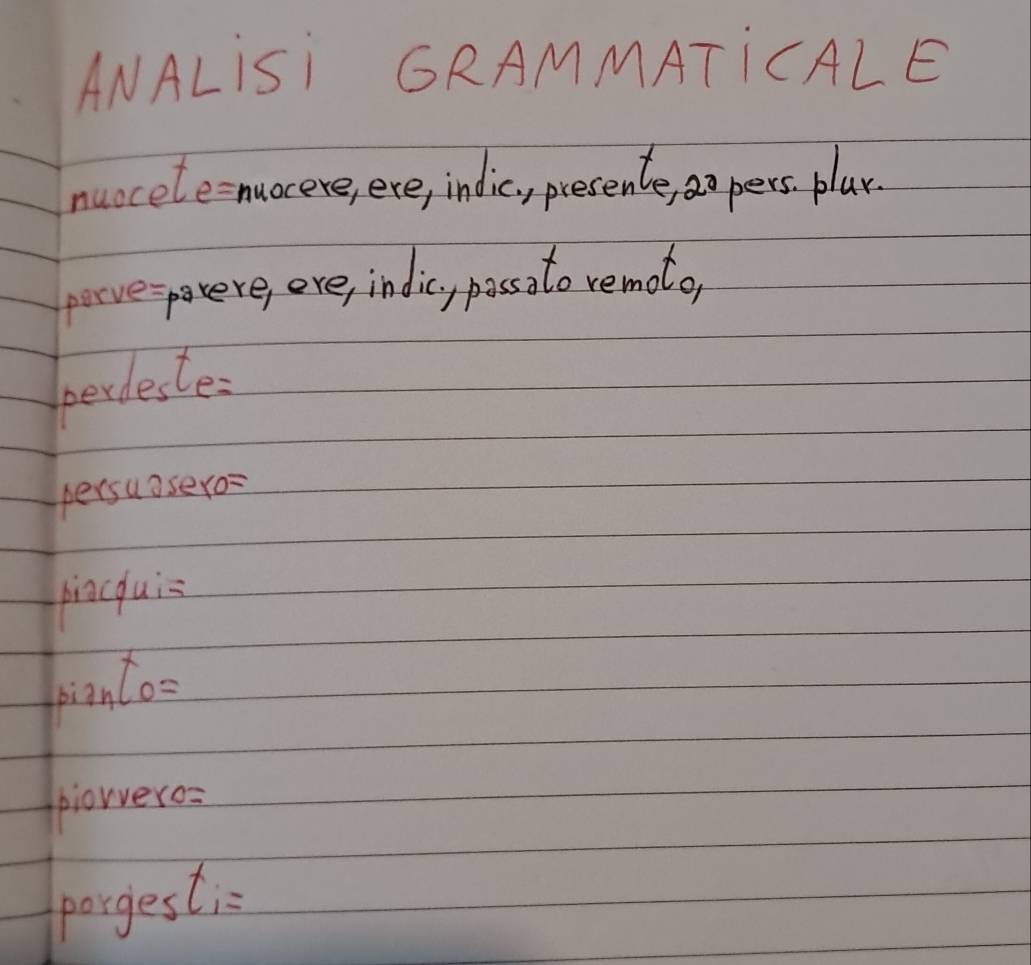 ANALiSi GRAMMATiCALE
nuocete=nuocere, ere, indic., presente, 2a pers. plur.
parve=parere, ere, indic., passato remoto,
perdeste=
persuasero=
piacqui=
pianto=
piovvero=
porgesti=